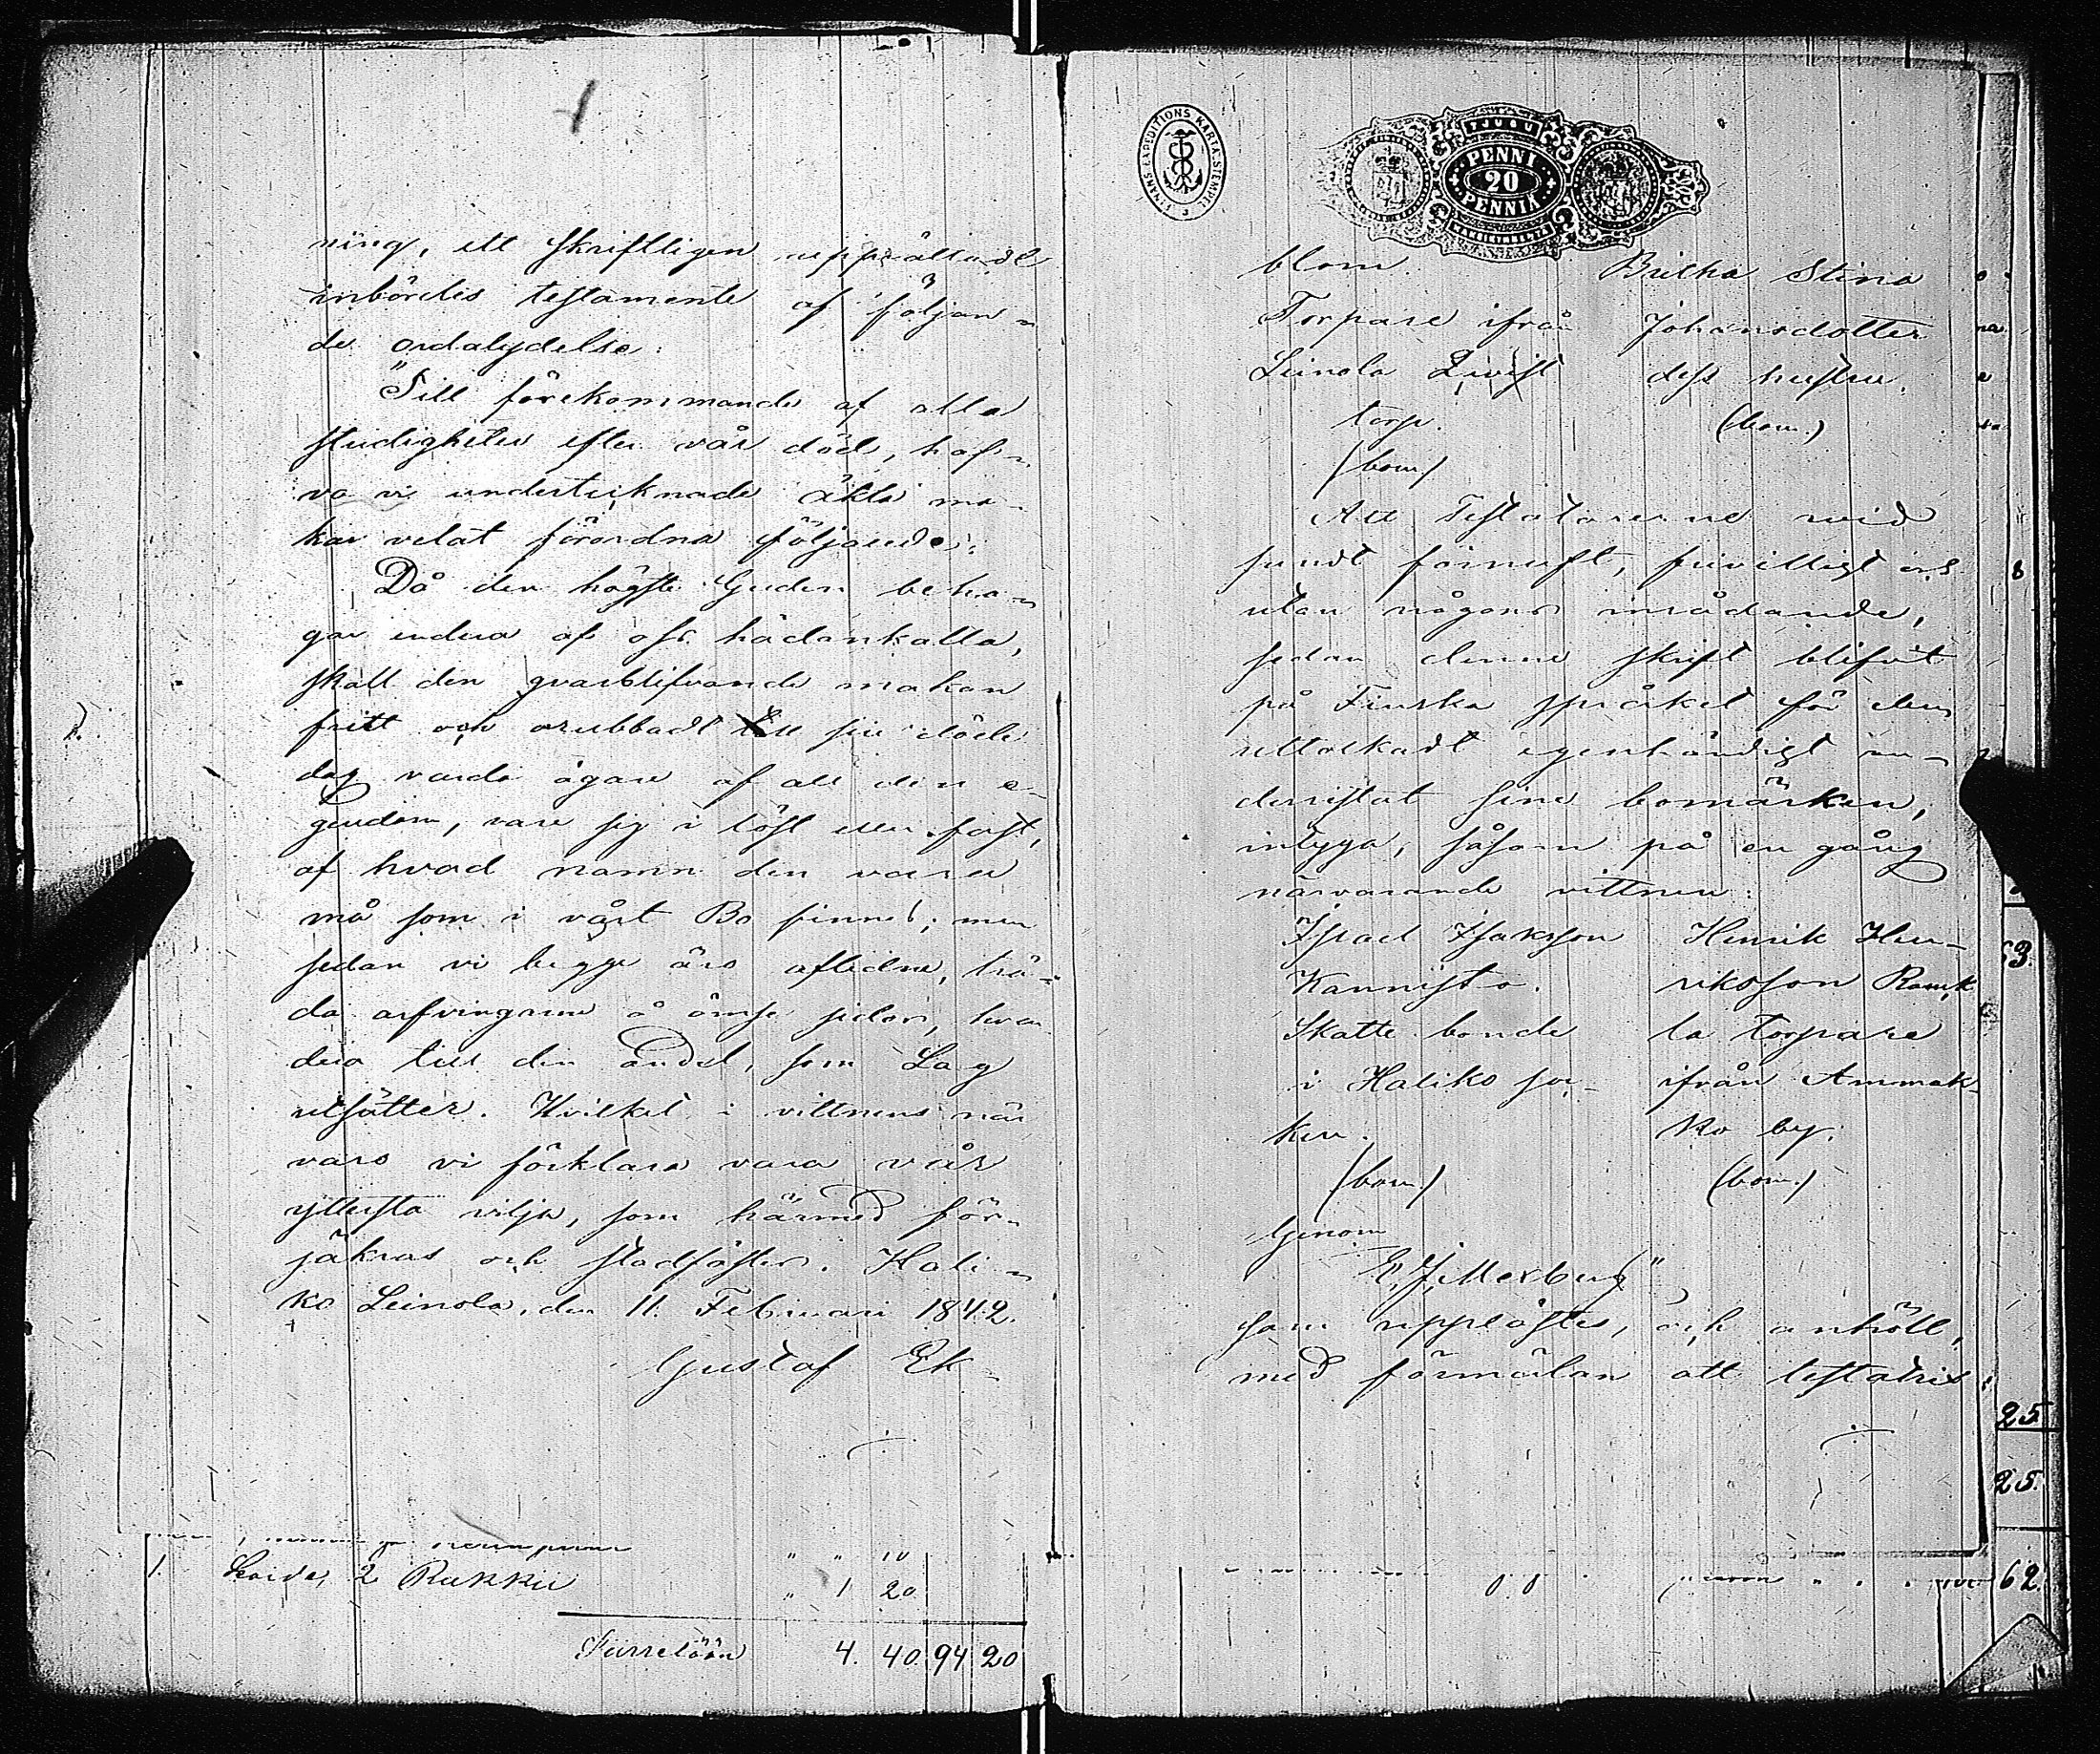 ning, ett skriftligen upprättadt
inbördes testamente af följan-
de ordalydelse:
"Till förekommande af alla
stridigheter efter vår död, haf-
va vi undertecknade äkta ma-
kar velat förordna följande:
Då den högste Guden beha-
gar endera af oss hädankalla,
skall den qvarblifvande makan
fritt och orubbadt till sin döde
dag varda ägare af all den e-
gendom, vare sig i löst eller fast,
af hvad namn den vara
må som i vårt Bo finnes; men
sedan vi begge äro aflidne, trä-
da arfvingarne å ömse sidor, hvar
dera till den andel, som Lag
utsätter. Hvilket i vittnens när
varo vi förklara vara vår
yttersta vilja, som härmed för-
säkras och stadfästes. Hali-
ko Leinola, den 11. Februari 1842.
Gustaf Ek-
1. Loida, 2 Rukkii " 1 20
Siirretään 4. 40. 94 20
FINANS EXPEDITIONS KARTA STEMPEL
TJUGU
PENNI
20
PENNIÄ
blom.
Torpare ifrån
Leinola Qvist
torp.
(bom.)
Britha Stina
Johansdotter
dess hustru.
(bom.)
Att Testatorerne wid
sundt förnuft, frivilligt och
utan någons inrådande,
sedan denne skrift blifvit
på Finska språket för dem
uttolkadt egenhändigt un-
derristat sine bomärken,
intyga, såsom på en gång
närvarande vittnen:
Israel Isaksson
Kannisto.
Skatte bonde
i Haliko soc-
ken.
(bom.)
Henrik Hen-
riksson Rauk
la torpare
ifrån Ammak
ko by.
(bom.)
Genom
E. J. Mexberg"
som upplästes, och anhöll,
med förmälan att testatrix
63.
25.
25.
62.